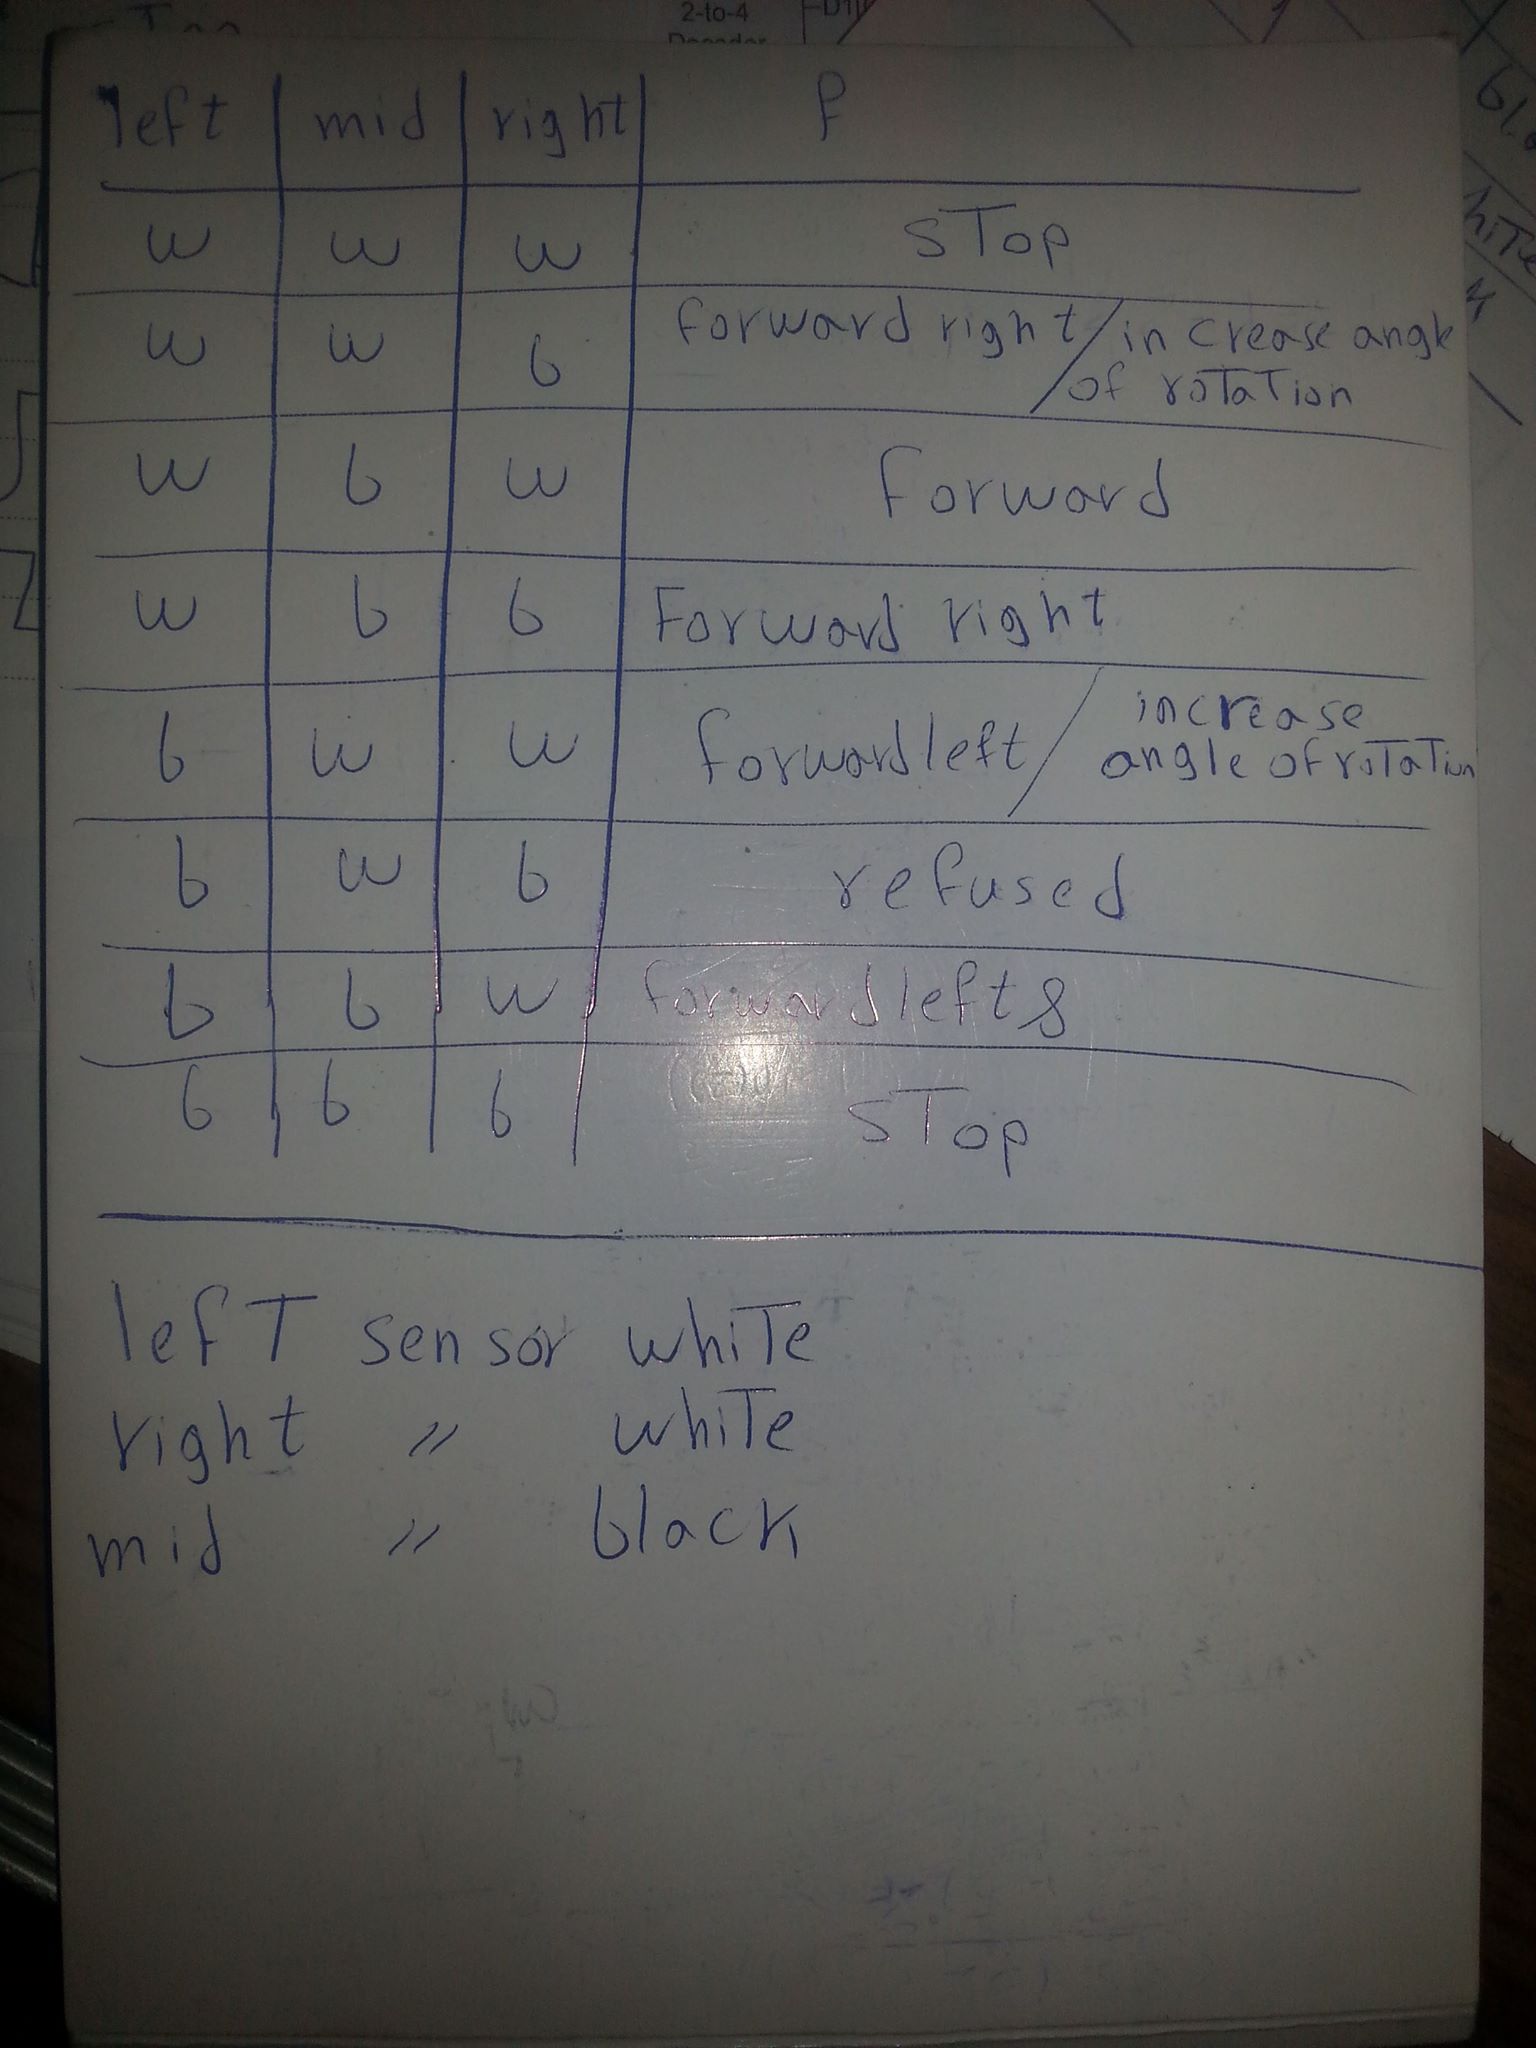 2-to-4
Decoder
left mid right f
w w w sTop
w w b forward right / increase angle
of roTaTion
w b w forward
w b b Forward right
b w w forward left / increase
angle of roTaTion
b w b refused
b b w forward left
b b b sTop
lefT sensor whiTe
right " whiTe
mid " black